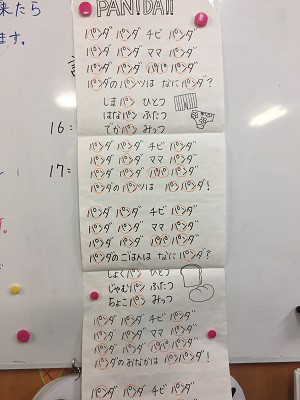 PAN!DA!!
来たら
ます。
パンダ パンダ チビ パンダ
パンダ パンダ ママ パンダ
パンダ パンダ パパ パンダ
パンダの パンツは なに パンダ?
しまパン ひとつ
はなパン ふたつ
でかパン みっつ
16:
17:
パンダ パンダ チビ パンダ
パンダ パンダ ママ パンダ
パンダ パンダ パパ パンダ
パンダの パンツは パンパンダ!
パンダ パンダ チビ パンダ
パンダ パンダ ママ パンダ
パンダ パンダ パパ パンダ
パンダの ごはんは なに パンダ?
しょくパン ひとつ
じゃむパン ふたつ
ちょこパン みっつ
パンダ パンダ チビ パンダ
パンダ パンダ ママ パンダ
パンダ パンダ パパ パンダ
パンダの おなかは パンパンダ!
パンダ パンダ チビ パンダ